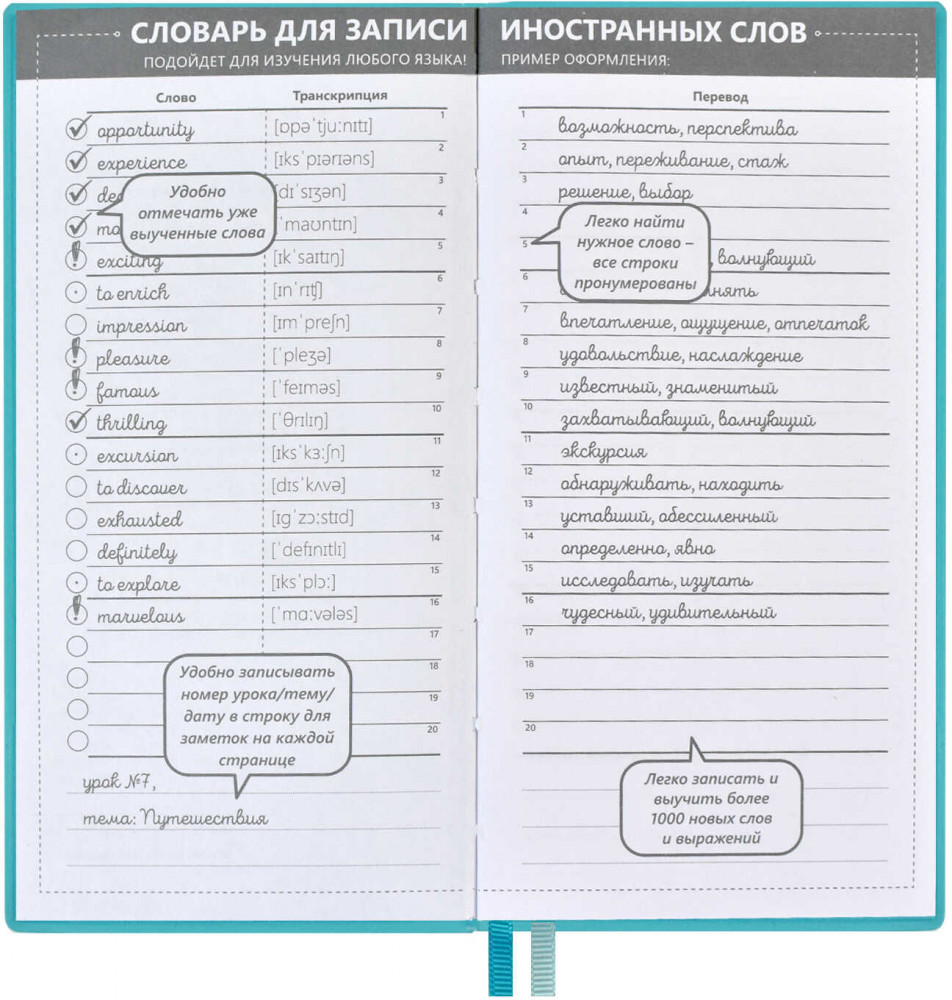 СЛОВАРЬ ДЛЯ ЗАПИСИ
ПОДОЙДЕТ ДЛЯ ИЗУЧЕНИЯ ЛЮБОГО ЯЗЫКА!
Слово Транскрипция
opportunity [ɒpəˈtju:nɪtɪ] 1
experience [ɪksˈpɪərɪəns] 2
[dɪˈsɪʒən] 3
[ˈmaʊntɪn] 4
Удобно
отмечать уже
выученные слова
exciting [ɪkˈsaɪtɪŋ] 5
to enrich [ɪnˈrɪʧ] 6
impression [ɪmˈpreʃn] 7
pleasure [ˈpleʒə] 8
famous [ˈfeɪməs] 9
thrilling [ˈθrɪlɪŋ] 10
excursion [ɪksˈkɜ:ʃn] 11
to discover [dɪsˈkʌvə] 12
exhausted [ɪgˈzɔ:stɪd] 13
definitely [ˈdefɪnɪtlɪ] 14
to explore [ɪksˈplɔ:] 15
marvelous [ˈmɑ:vələs] 16
17
18
19
20
Удобно записывать
номер урока/тему/
дату в строку для
заметок на каждой
странице
урок №7,
тема: Путешествия
ИНОСТРАННЫХ СЛОВ
ПРИМЕР ОФОРМЛЕНИЯ:
Перевод
1 возможность, перспектива
2 опыт, переживание, стаж
3 решение, выбор
4
Легко найти
нужное слово –
все строки
пронумерованы
5 , волнующий
6
7 впечатление, ощущение, отпечаток
8 удовольствие, наслаждение
9 известный, знаменитый
10 захватывающий, волнующий
11 экскурсия
12 обнаруживать, находить
13 уставший, обессиленный
14 определенно, явно
15 исследовать, изучать
16 чудесный, удивительный
17
18
19
20
Легко записать и
выучить более
1000 новых слов
и выражений